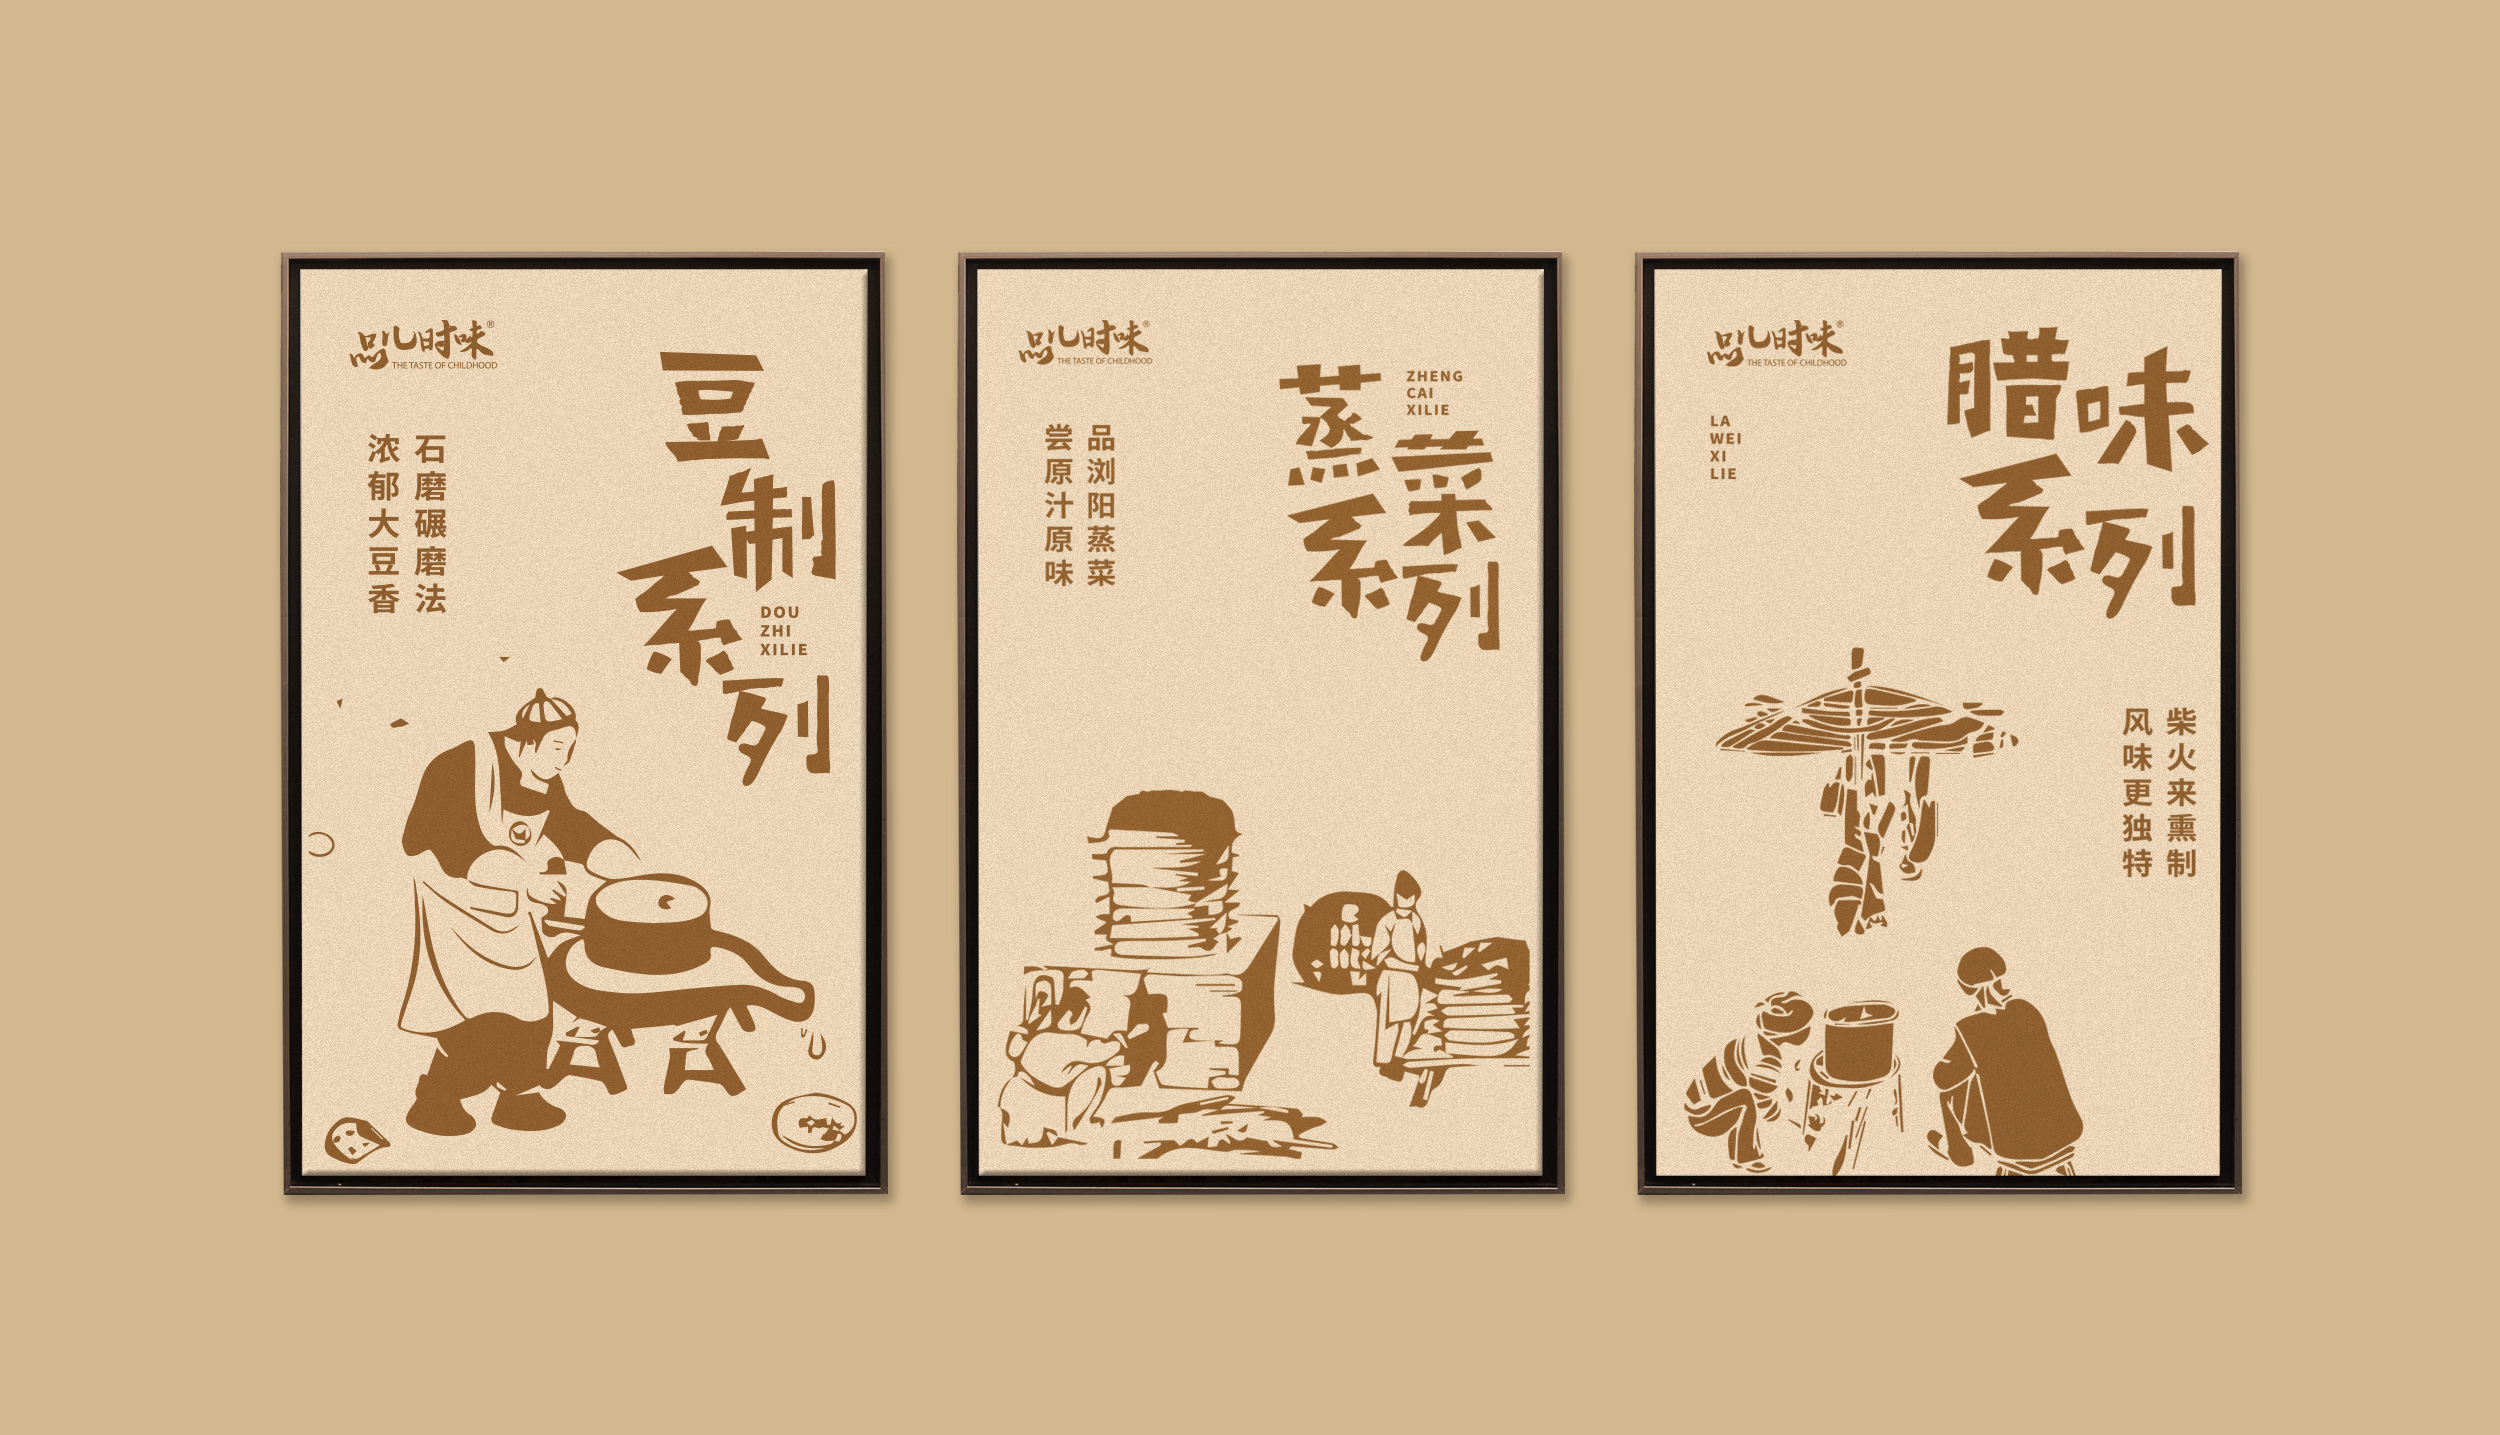 儿时味®
THE TASTE OF CHILDHOOD
豆制
系列
DOU
ZHI
XILIE
石磨碾磨法
浓郁大豆香
儿时味®
THE TASTE OF CHILDHOOD
蒸菜
系列
ZHENG
CAI
XILIE
品浏阳蒸菜
尝原汁原味
儿时味®
THE TASTE OF CHILDHOOD
腊味
系列
LA
WEI
XI
LIE
柴火来熏制
风味更独特